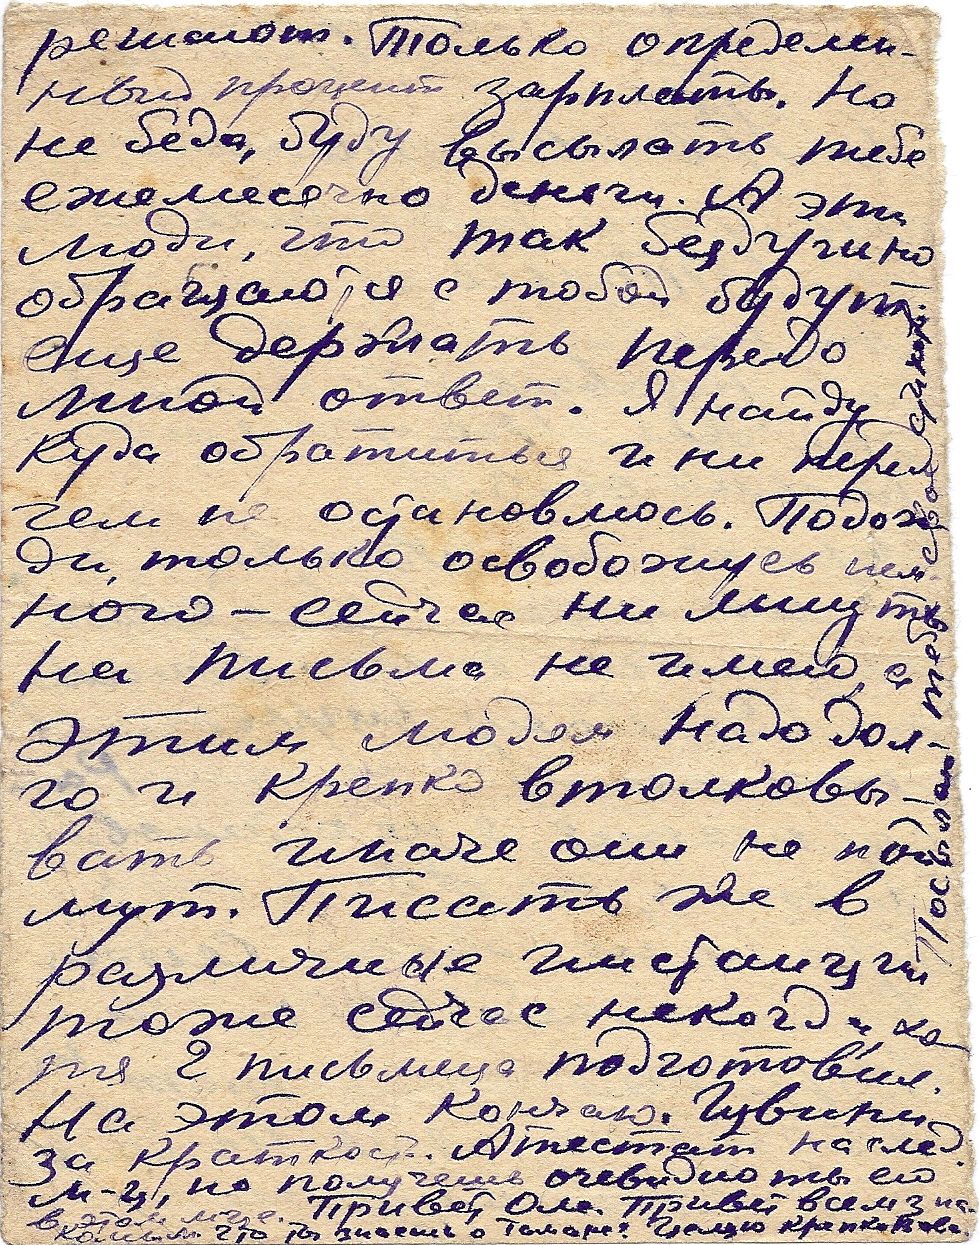 решают. Только определен-
ный процент зарплаты. Но
не беда, буду высылать тебе
ежемесячно деньги. А эти
люди, что так бездушно
обращаются с тобой будут
еще держать передо
мной ответ. Я найду
куда обратиться и ни перед
чем не остановлюсь. Подож
ди, только освобожусь нем-
ного – сейчас ни минуты
на письма не имею, а
этим людям надо дол-
го и крепко втолковы-
вать иначе они не пой
мут. Писать же в
различные инстанции
тоже сейчас некогда, хо
тя 2 письмеца подготовил.
На этом кончаю. Извини
за краткость. Аттестат на след.
м-ц, но получешь очевидно ты его
в этом м-це. Привет Оле. Привет всем зна-
комым. Что ты знаешь о Тамаре? Целую крепко Вова.
Посылаю тебе свой